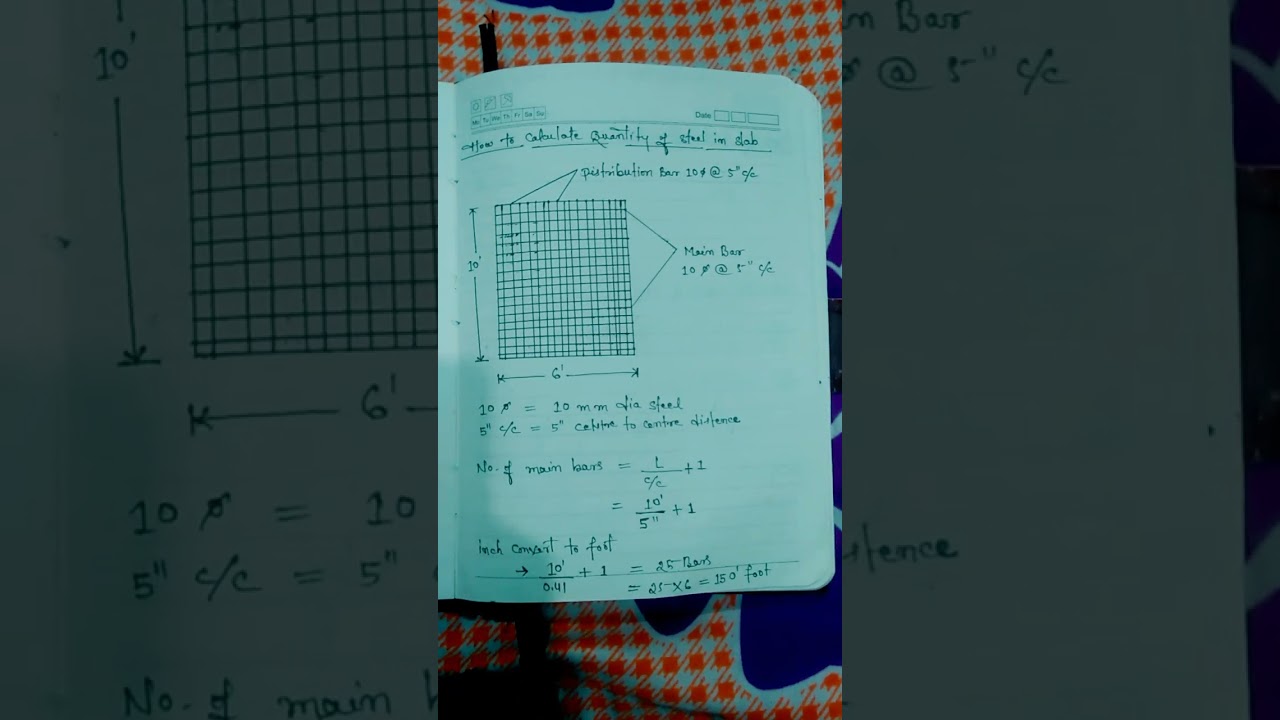 Mo Tu We Th Fr Sa Su
Date
How to Calculate Quantity of steel in slab
Distribution Bar 10 ø @ 5" c/c
10'
Main Bar
10 ø @ 5" c/c
6'
10 ø = 10 mm dia steel
5" c/c = 5" centre to centre distence
No. of main bars = L / c/c + 1
= 10' / 5" + 1
inch convert to foot
→ 10' / 0.41 + 1 = 25 Bars
= 25 × 6 = 150' foot